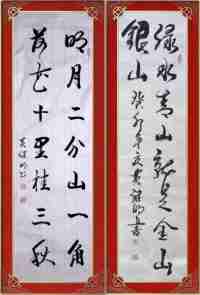 绿水青山就是金山
银山
癸卯年夏
明月二分山一角
荷花十里桂三秋